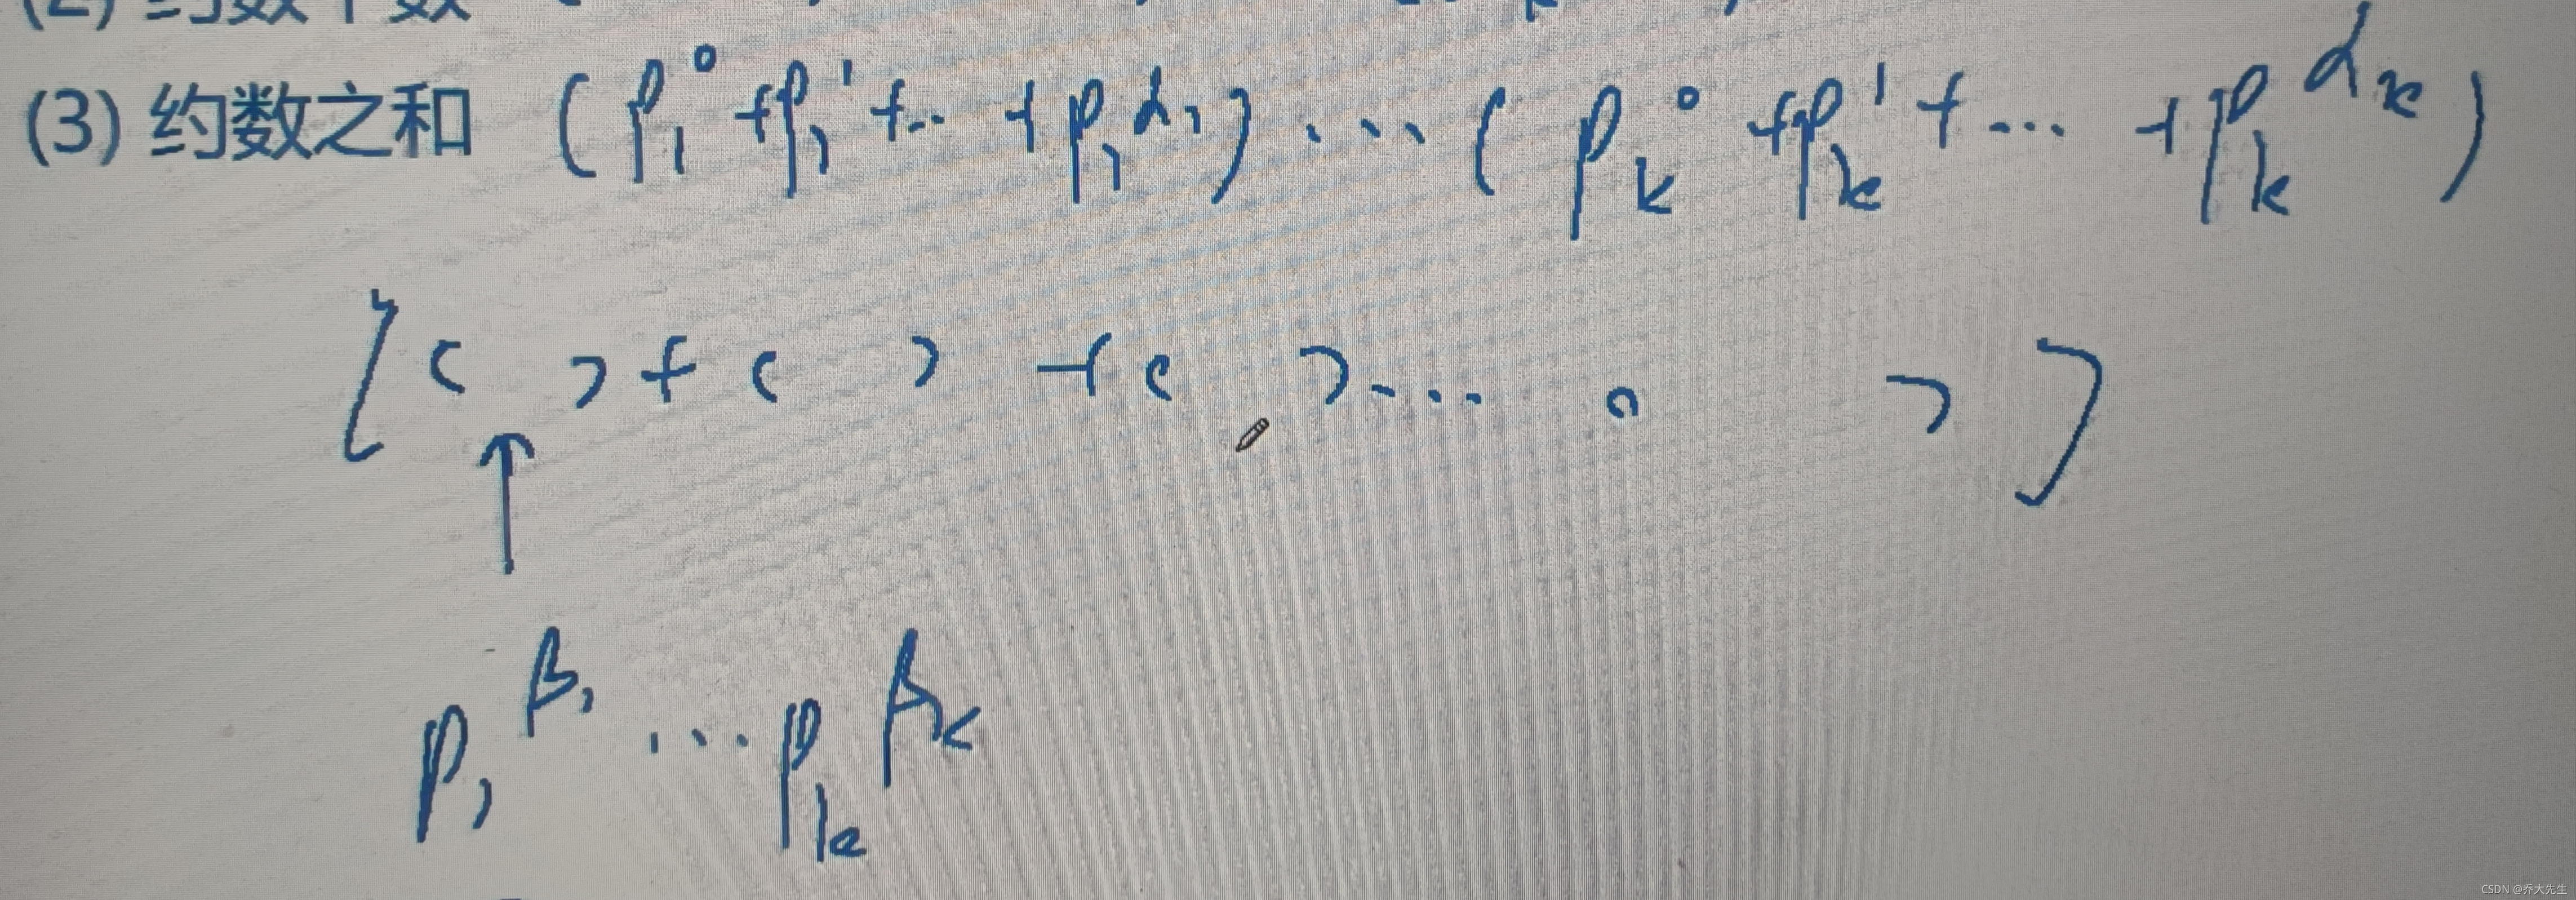 (2) 约数个数
(3) 约数之和 (p₁⁰+p₁¹+…+p₁^α₁)…(pₖ⁰+pₖ¹+…+pₖ^αₖ)
[( )+( )+( )… ( )]
↑
p₁^β₁…pₖ^βₖ
CSDN @乔大先生